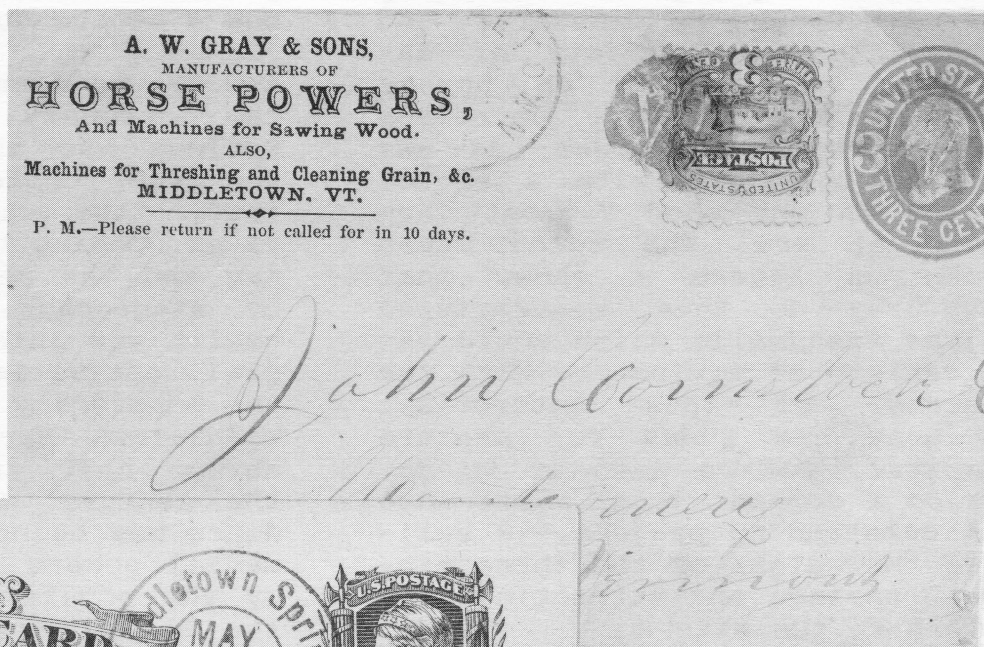 A. W. GRAY & SONS,
MANUFACTURERS OF
HORSE POWERS,
And Machines for Sawing Wood.
ALSO,
Machines for Threshing and Cleaning Grain, &c.
MIDDLETOWN, VT.
P. M.—Please return if not called for in 10 days.
3
POSTAGE
UNITED STATES
UNITED STA
3
THREE CENT
John Comstock
Vermont
dletown Spri
MAY
U.S. POSTAGE
S
CARD